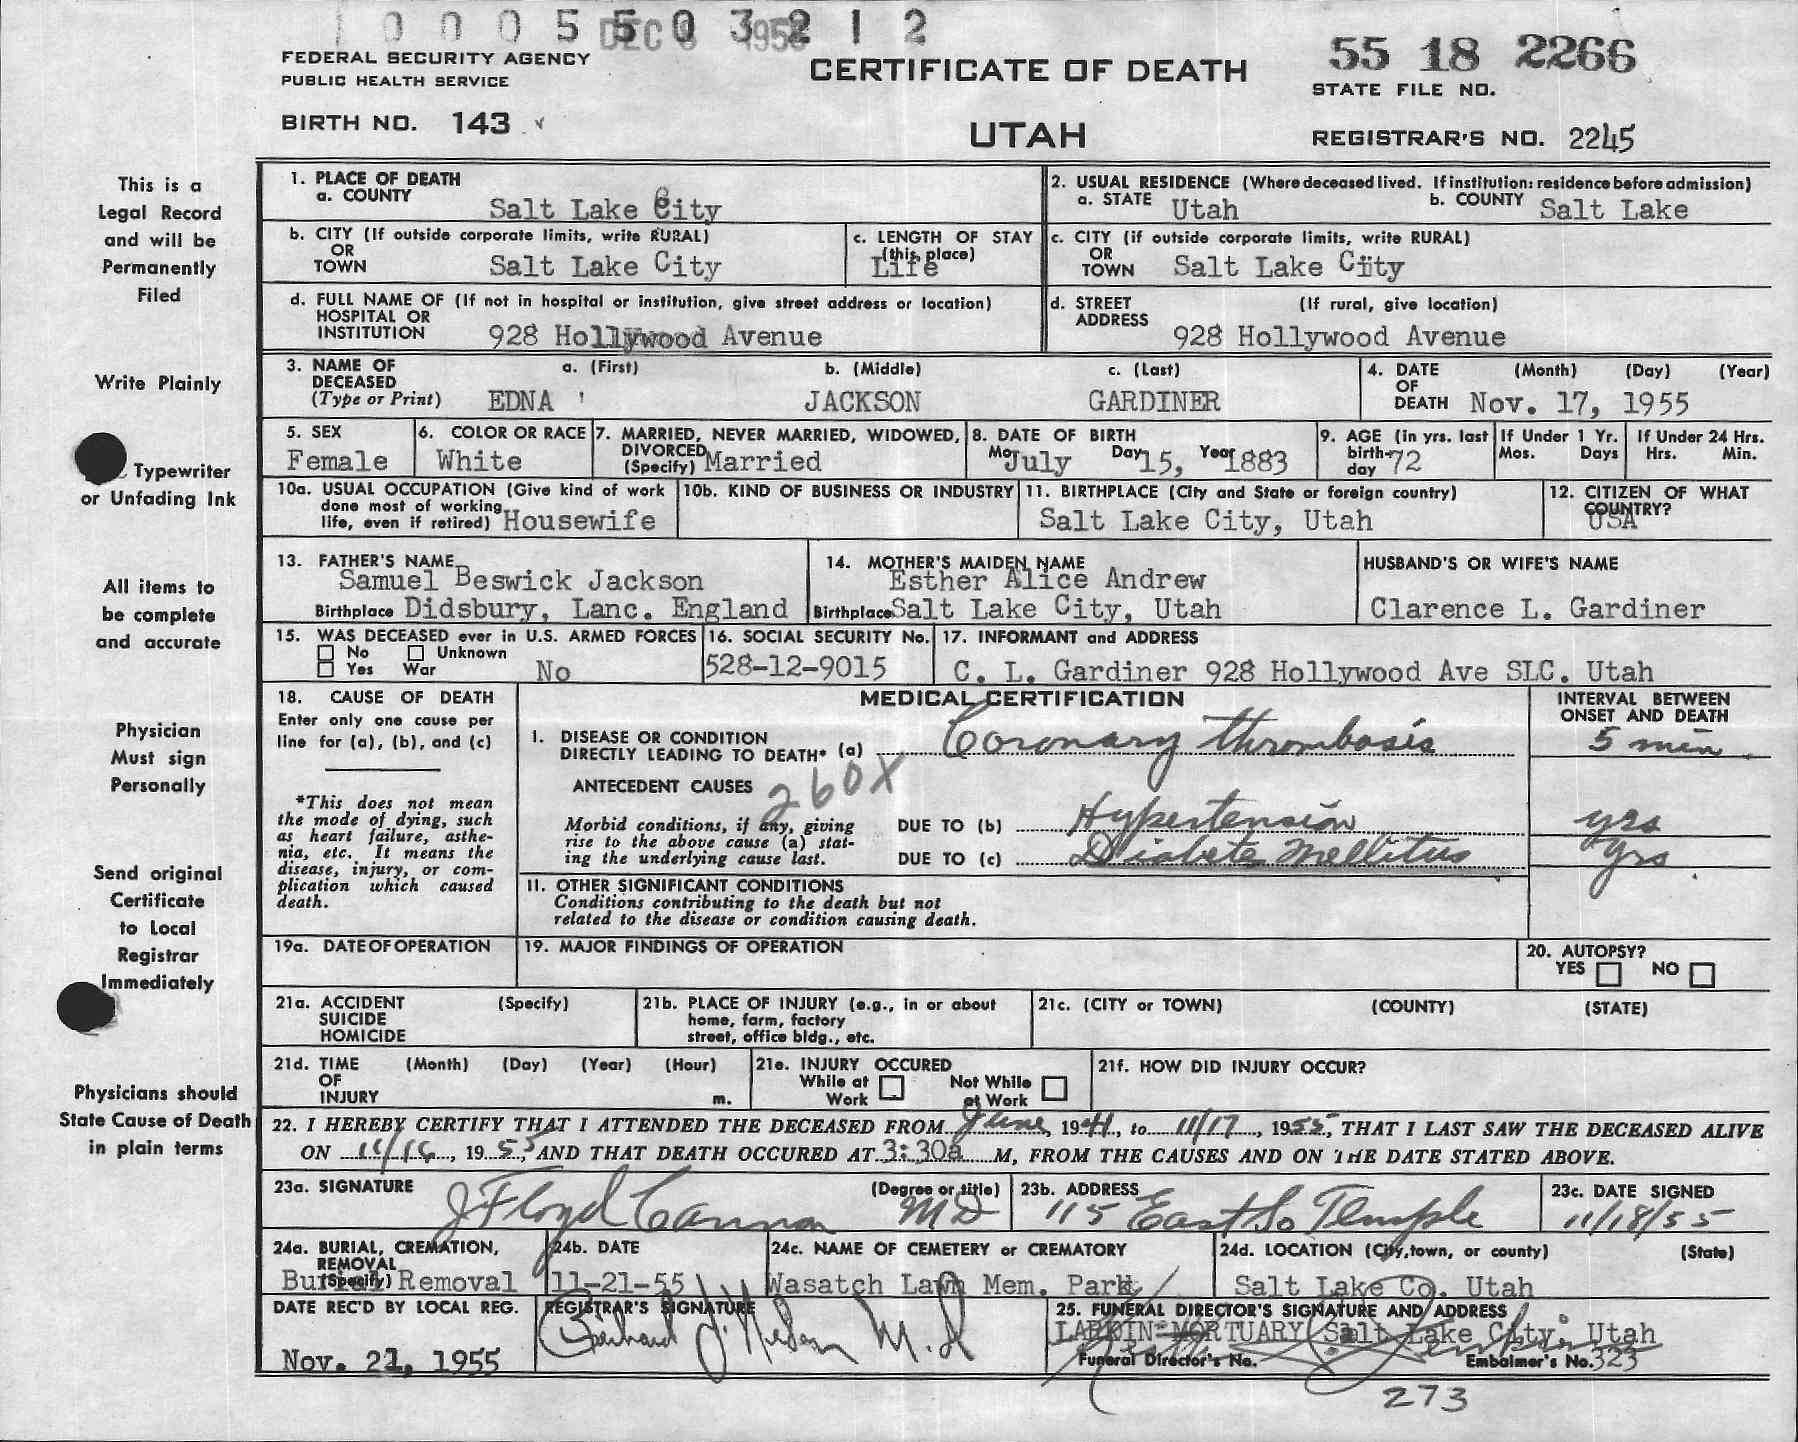 1 0 0 0 5 5 0 3 2 1 2
DEC 1955
FEDERAL SECURITY AGENCY
PUBLIC HEALTH SERVICE
CERTIFICATE OF DEATH
55 18 2266
STATE FILE NO.
BIRTH NO. 143
UTAH
REGISTRAR'S NO. 2245
This is a
Legal Record
and will be
Permanently
Filed
Write Plainly
Typewriter
or Unfading Ink
All items to
be complete
and accurate
Physician
Must sign
Personally
Send original
Certificate
to Local
Registrar
Immediately
Physicians should
State Cause of Death
in plain terms
1. PLACE OF DEATH
a. COUNTY Salt Lake City
2. USUAL RESIDENCE (Where deceased lived. If institution: residence before admission)
a. STATE Utah b. COUNTY Salt Lake
b. CITY (If outside corporate limits, write RURAL)
OR
TOWN Salt Lake City
c. LENGTH OF STAY
(this place)
Life
c. CITY (if outside corporate limits, write RURAL)
OR
TOWN Salt Lake City
d. FULL NAME OF (If not in hospital or institution, give street address or location)
HOSPITAL OR
INSTITUTION 928 Hollywood Avenue
d. STREET (If rural, give location)
ADDRESS
928 Hollywood Avenue
3. NAME OF a. (First) b. (Middle) c. (Last)
DECEASED
(Type or Print) EDNA JACKSON GARDINER
4. DATE (Month) (Day) (Year)
OF
DEATH Nov. 17, 1955
5. SEX
Female
6. COLOR OR RACE
White
7. MARRIED, NEVER MARRIED, WIDOWED,
DIVORCED
(Specify) Married
8. DATE OF BIRTH
Mo. July Day 15, Year 1883
9. AGE (in yrs. last
birth-
day 72
If Under 1 Yr.
Mos. Days
If Under 24 Hrs.
Hrs. Min.
10a. USUAL OCCUPATION (Give kind of work
done most of working
life, even if retired) Housewife
10b. KIND OF BUSINESS OR INDUSTRY
11. BIRTHPLACE (City and State or foreign country)
Salt Lake City, Utah
12. CITIZEN OF WHAT
COUNTRY?
USA
13. FATHER'S NAME
Samuel Beswick Jackson
Birthplace Didsbury, Lanc. England
14. MOTHER'S MAIDEN NAME
Esther Alice Andrew
Birthplace Salt Lake City, Utah
HUSBAND'S OR WIFE'S NAME
Clarence L. Gardiner
15. WAS DECEASED ever in U.S. ARMED FORCES
No Unknown
Yes War No
16. SOCIAL SECURITY No.
528-12-9015
17. INFORMANT and ADDRESS
C. L. Gardiner 928 Hollywood Ave SLC. Utah
18. CAUSE OF DEATH
Enter only one cause per
line for (a), (b), and (c)
*This does not mean
the mode of dying, such
as heart failure, asthe-
nia, etc. It means the
disease, injury, or com-
plication which caused
death.
MEDICAL CERTIFICATION
INTERVAL BETWEEN
ONSET AND DEATH
I. DISEASE OR CONDITION
DIRECTLY LEADING TO DEATH* (a) Coronary thrombosis 5 min
ANTECEDENT CAUSES 260X
Morbid conditions, if any, giving
rise to the above cause (a) stat-
ing the underlying cause last.
DUE TO (b) Hypertension yrs
DUE TO (c) Diabetes Mellitus yrs
II. OTHER SIGNIFICANT CONDITIONS
Conditions contributing to the death but not
related to the disease or condition causing death.
19a. DATE OF OPERATION
19. MAJOR FINDINGS OF OPERATION
20. AUTOPSY?
YES NO
21a. ACCIDENT (Specify)
SUICIDE
HOMICIDE
21b. PLACE OF INJURY (e.g., in or about
home, farm, factory
street, office bldg., etc.
21c. (CITY or TOWN) (COUNTY) (STATE)
21d. TIME (Month) (Day) (Year) (Hour)
OF
INJURY m.
21e. INJURY OCCURED
While at Work Not While at Work
21f. HOW DID INJURY OCCUR?
22. I HEREBY CERTIFY THAT I ATTENDED THE DECEASED FROM June, 1941, to 11/17, 1955, THAT I LAST SAW THE DECEASED ALIVE
ON 11/16, 1955, AND THAT DEATH OCCURED AT 3:30a M, FROM THE CAUSES AND ON THE DATE STATED ABOVE.
23a. SIGNATURE (Degree or title)
J Floyd Cannon MD
23b. ADDRESS
115 East So Temple
23c. DATE SIGNED
11/18/55
24a. BURIAL, CREMATION,
REMOVAL
(Specify)
Burial Removal
24b. DATE
11-21-55
24c. NAME OF CEMETERY or CREMATORY
Wasatch Lawn Mem. Park
24d. LOCATION (City, town, or county) (State)
Salt Lake Co. Utah
DATE REC'D BY LOCAL REG.
Nov. 21, 1955
REGISTRAR'S SIGNATURE
M.D
25. FUNERAL DIRECTOR'S SIGNATURE AND ADDRESS
LARKIN MORTUARY Salt Lake City, Utah
Funeral Director's No. Embalmer's No. 323
273